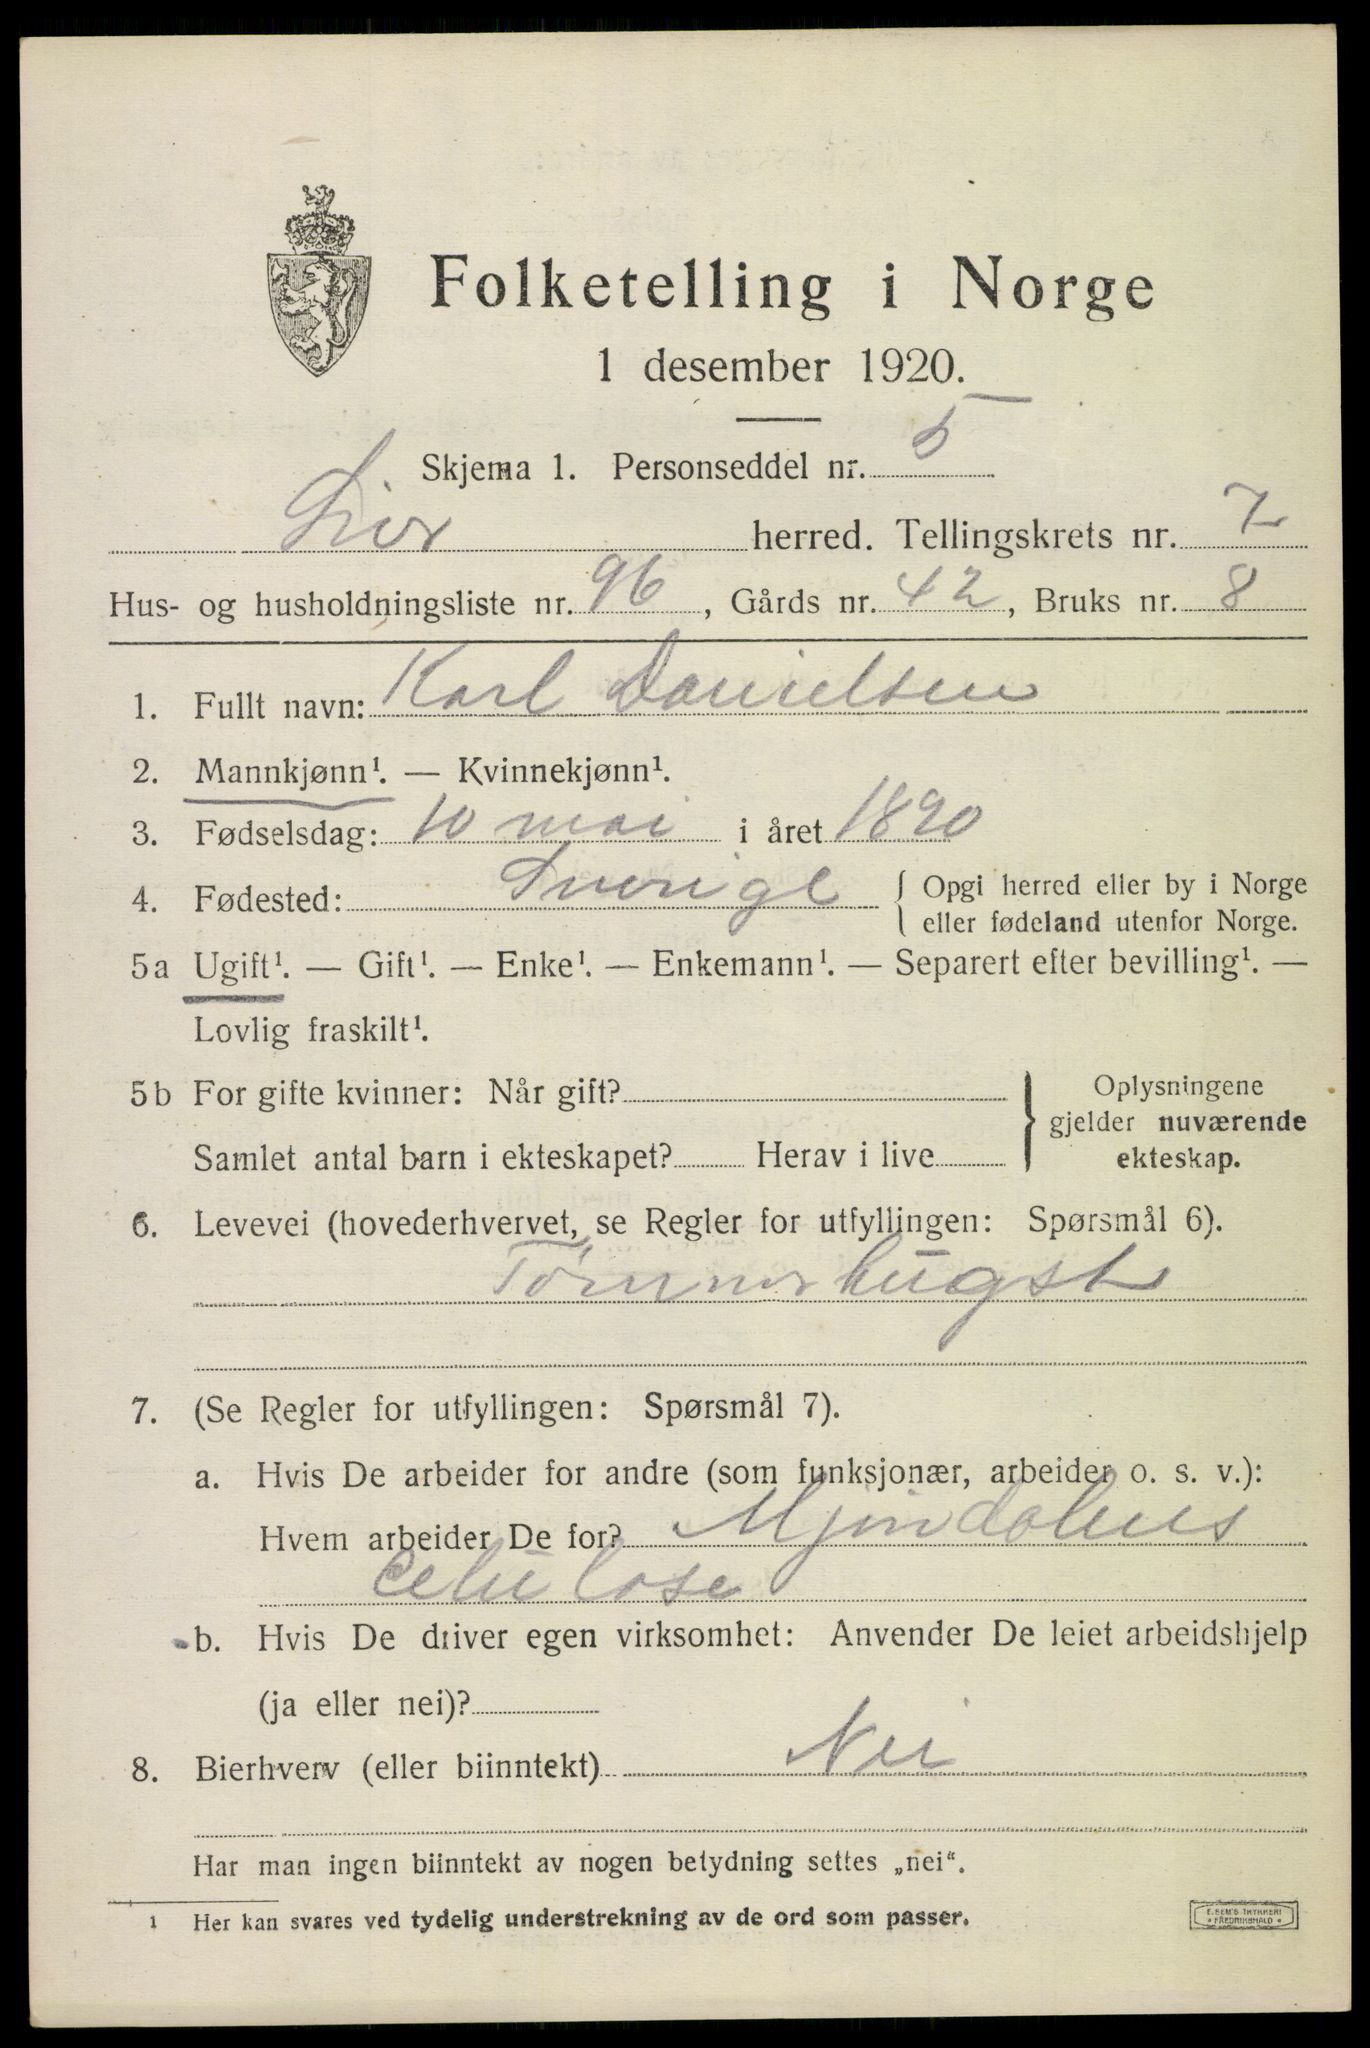 Folketelling i Norge
1 desember 1920.
Skjema 1. Personseddel nr. 5
Lier herred. Tellingskrets nr. 7
Hus- og husholdningsliste nr. 96, Gårds nr. 42, Bruks nr. 8
1. Fullt navn: Karl Danielsen
2. Mannkjønn¹. — Kvinnekjønn¹.
3. Fødselsdag: 10 mai i året 1890
4. Fødested: Sverige { Opgi herred eller by i Norge
eller fødeland utenfor Norge.
5a Ugift¹. — Gift¹. — Enke¹. — Enkemann¹. — Separert efter bevilling¹. —
Lovlig fraskilt¹.
5b For gifte kvinner: Når gift? } Oplysningene
gjelder nuværende
Samlet antal barn i ekteskapet? Herav i live
ekteskap.
6. Levevei (hovederhvervet, se Regler for utfyllingen: Spørsmål 6).
Tømmerhugst
7. (Se Regler for utfyllingen: Spørsmål 7).
a. Hvis De arbeider for andre (som funksjonær, arbeider o. s. v.):
Hvem arbeider De for? Mjøndalens
Celulose
b. Hvis De driver egen virksomhet: Anvender De leiet arbeidshjelp
(ja eller nei)?
8. Bierhverv (eller biinntekt) Nei
Har man ingen biinntekt av nogen betydning settes „nei“.
1 Her kan svares ved tydelig understrekning av de ord som passer.
E. SEM'S TRYKKERI
* FREDRIKSHALD *